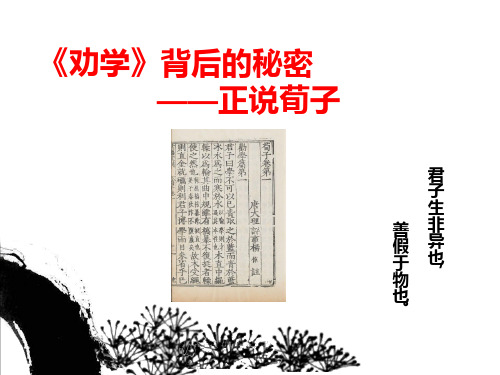 《劝学》背后的秘密
——正说荀子
荀子卷第一
唐大理評事楊倞註
勸學篇第一
君子曰學不可以已青取之於藍而青於藍
冰水爲之而寒於水 木直中繩
輮以爲輪其曲中規雖有槁暴不復挺者輮
使之然也 故木受繩
則直金就礪則利君子博學而日參省乎己
君子生非异也,
善假于物也,